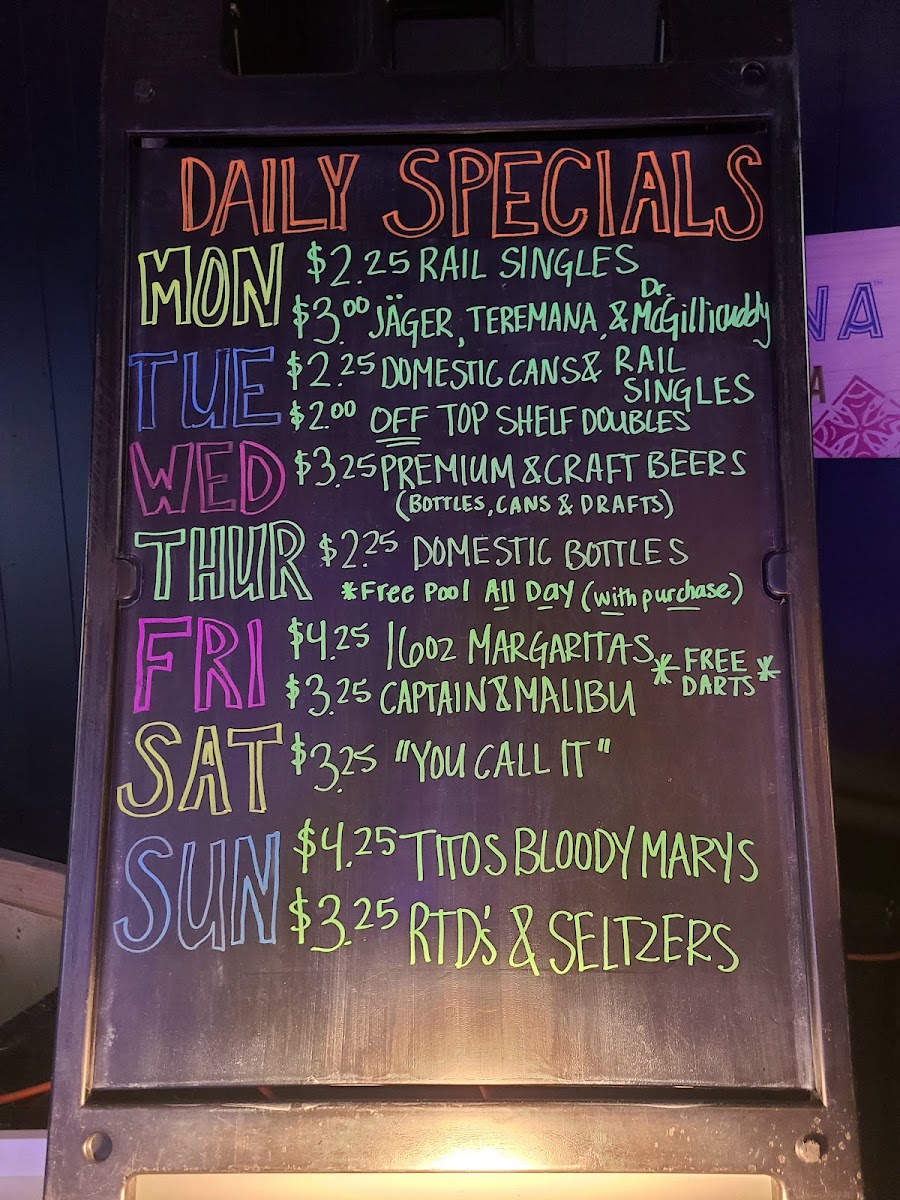 DAILY SPECIALS
MON $2.25 RAIL SINGLES
$3.00 JÄGER, TEREMANA, & Dr. McGillicuddy
TUE $2.25 DOMESTIC CANS & RAIL SINGLES
$2.00 OFF TOP SHELF DOUBLES
WED $3.25 PREMIUM & CRAFT BEERS
(BOTTLES, CANS & DRAFTS)
THUR $2.25 DOMESTIC BOTTLES
*Free Pool All Day (with purchase)
FRI $4.25 16oz MARGARITAS
$3.25 CAPTAIN & MALIBU
*FREE DARTS*
SAT $3.25 "YOU CALL IT"
SUN $4.25 TITOS BLOODY MARYS
$3.25 RTD's & SELTZERS
NA™
A